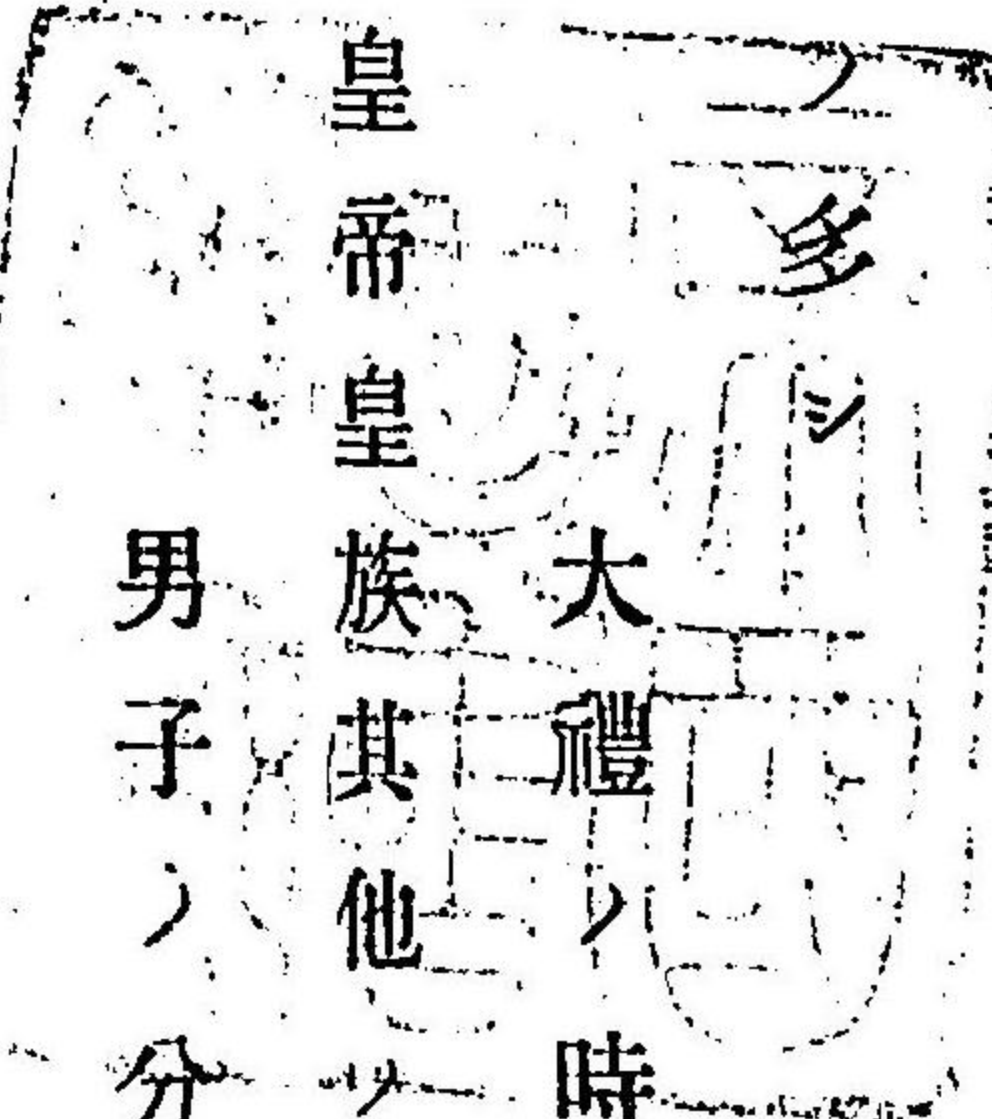 ノ多シ
大禮ノ時
皇帝皇族其他ノ
男子ノ分